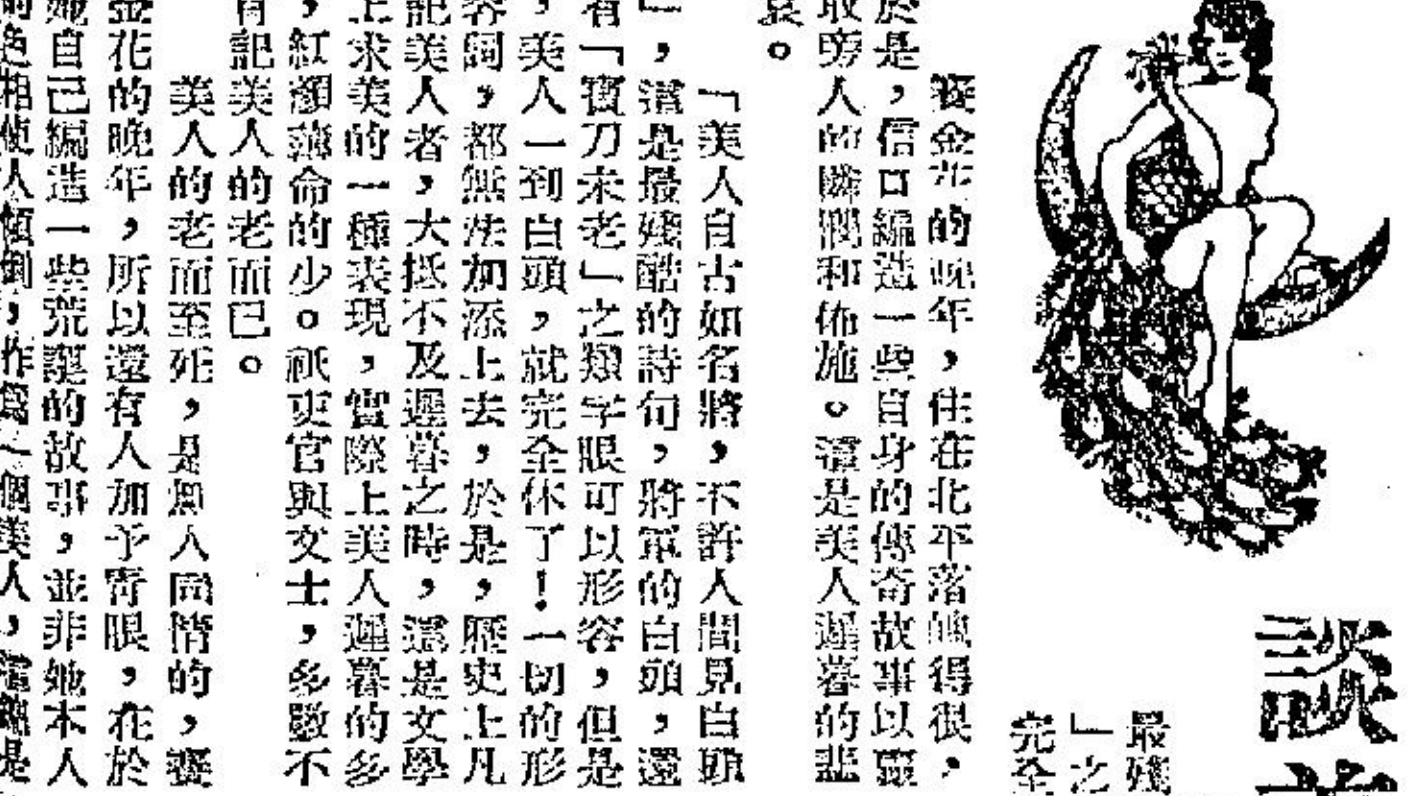 談
最殘
」之
完全
賽金花的晚年，住在北平落魄得很，
於是，信口編造一些自身的傳奇故事以
取旁人的憐憫和佈施。這是美人遲暮的悲
哀。
「美人自古如名將，不許人間見白頭
」，這是最殘酷的詩句，將軍的白頭，還
有「寶刀未老」之類字眼可以形容，但是
，美人一到白頭，就完全休了！一切的形
容詞，都無法加添上去，於是，歷史上凡
記美人者，大抵不及遲暮之時，這是文學
上求美的一種表現，實際上美人遲暮的多
，紅顏薄命的少。祇史官與文士，多數不
肯記美人的老而已。
美人的老而至死，是無人同情的，賽
金花的晚年，所以還有人加予青眼，在於
她自己編造一些荒誕的故事，並非她本人
的色相使人傾倒，作為一個美人，這總是